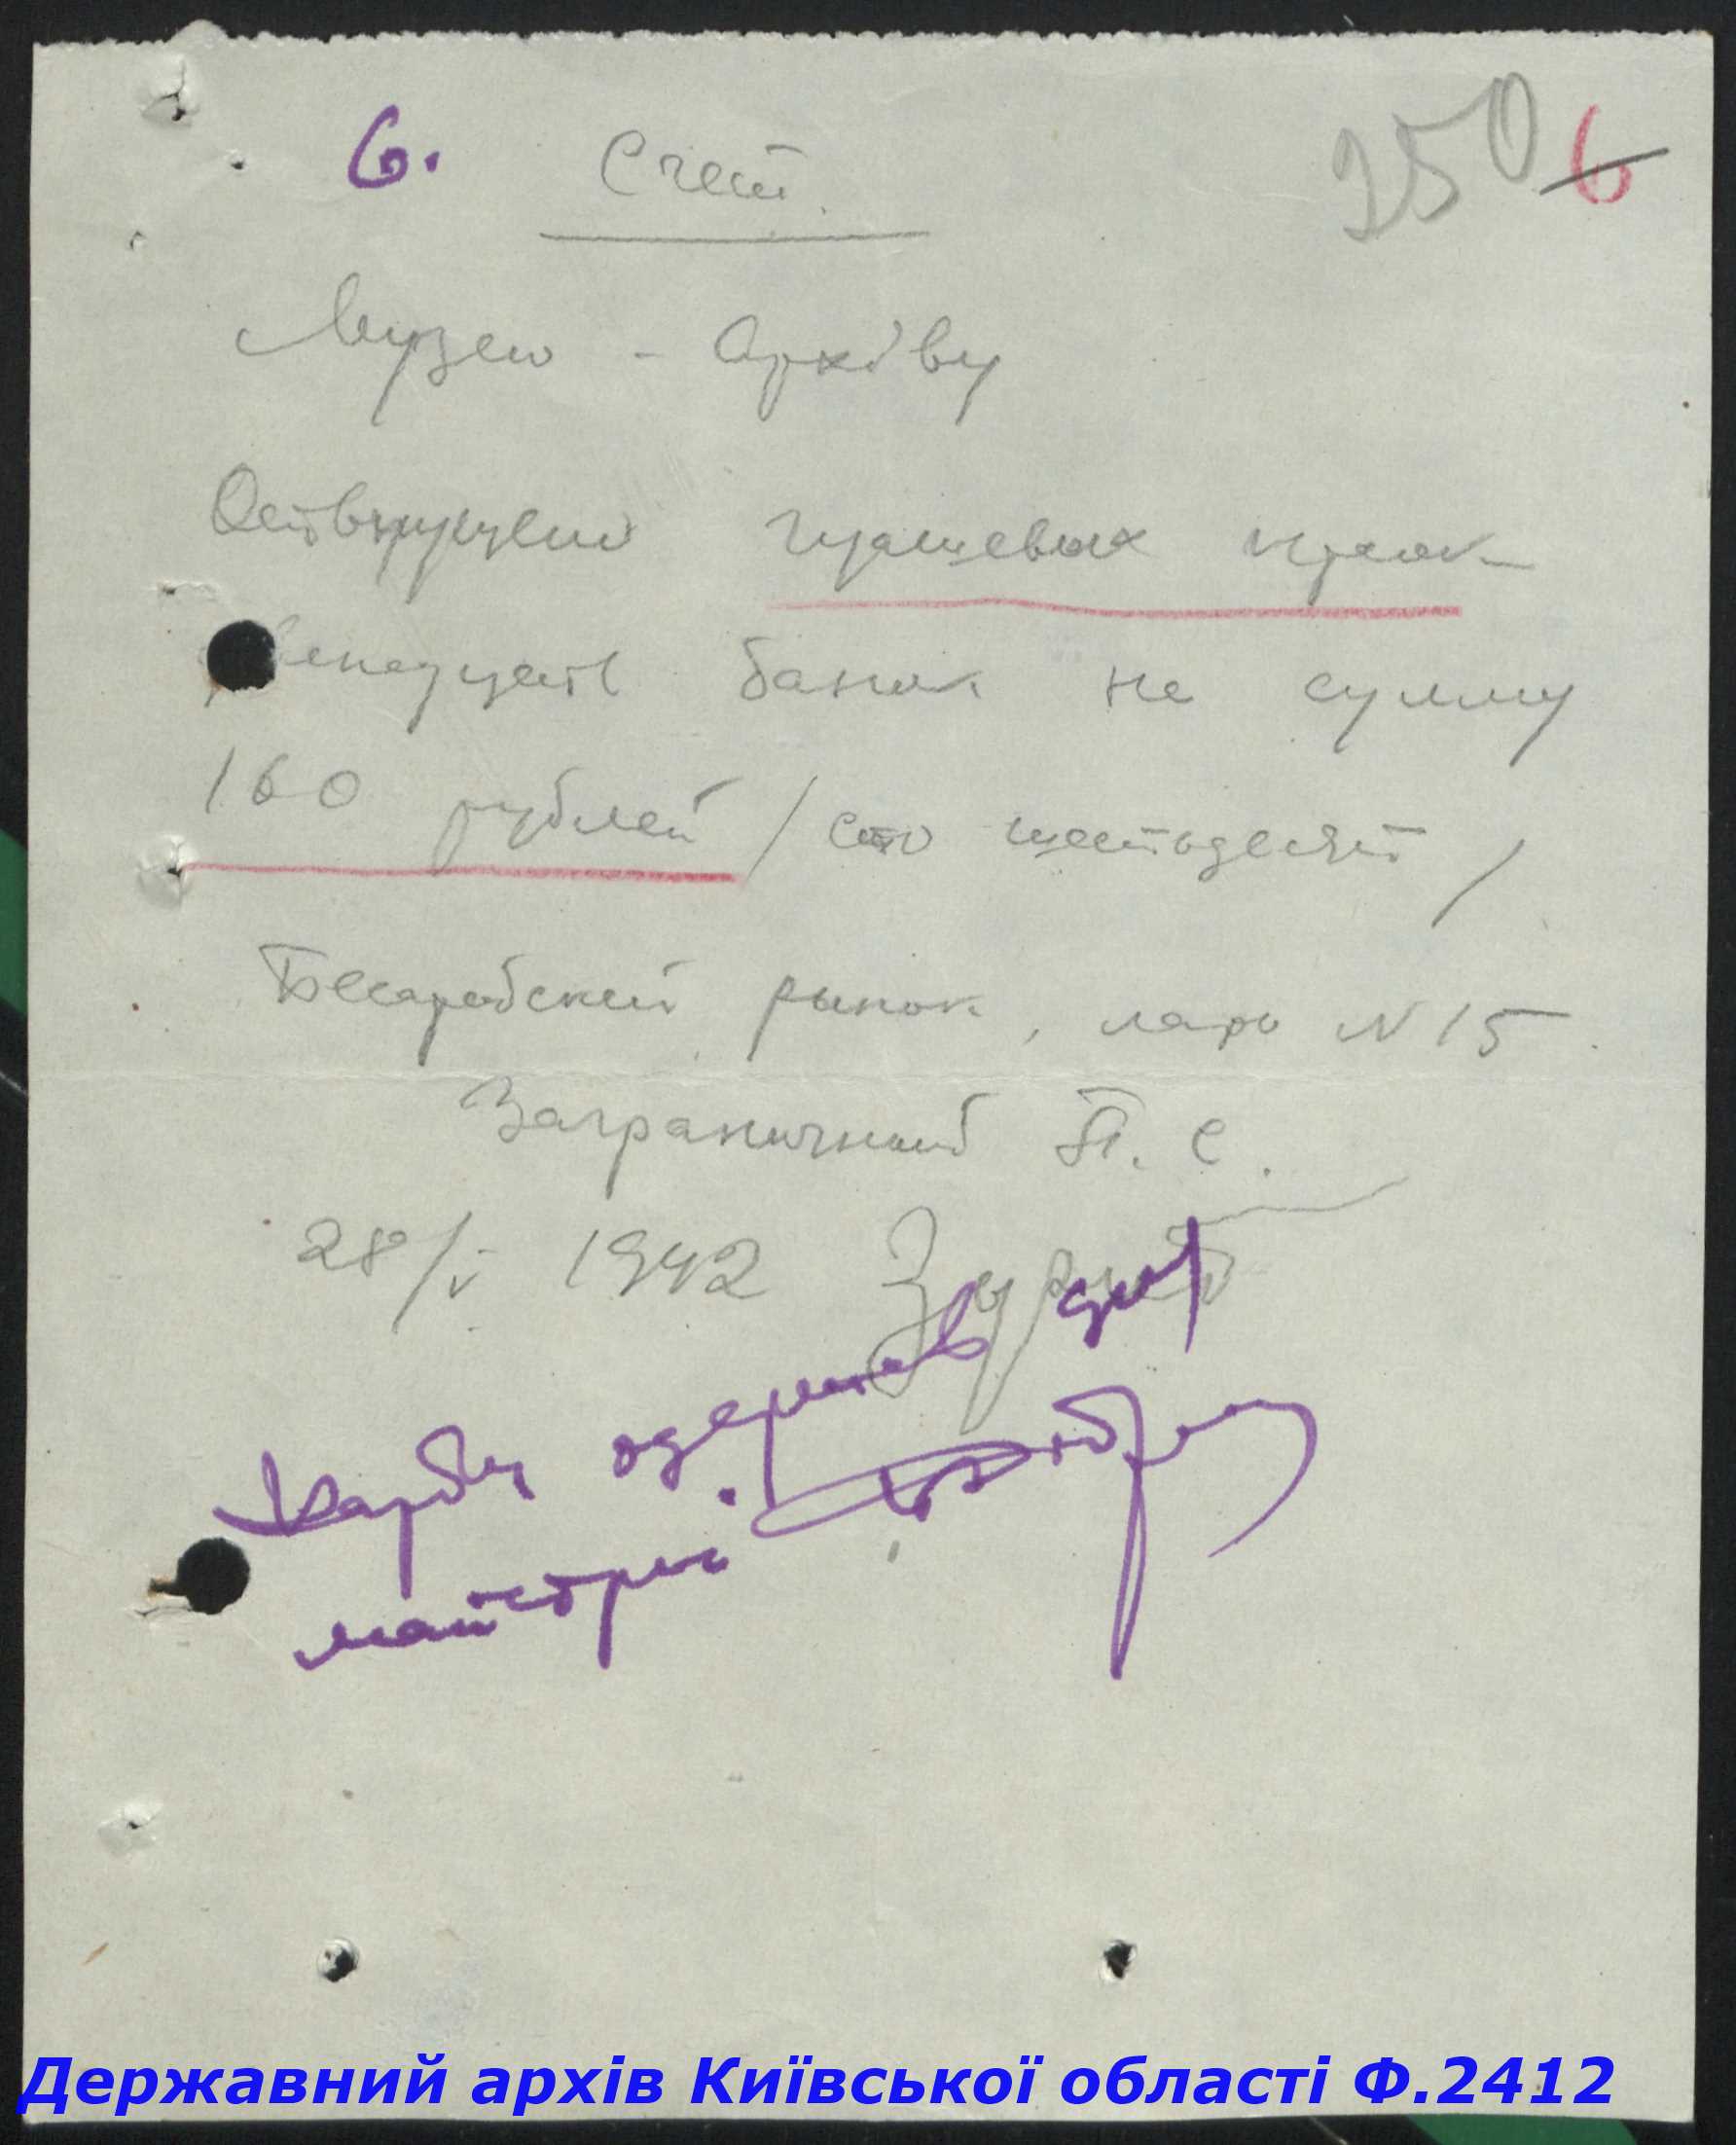 6. Счет. 250 6
Музею - Архіву
гуашевых красок
банок на сумму
160 рублей / сто шестьдесят /
Бесарабский рынок, ларь N 15.
Заграничный П. С.
28/V 1942
Фарбу одержав для
майстрні
Державний архів Київської області Ф.2412